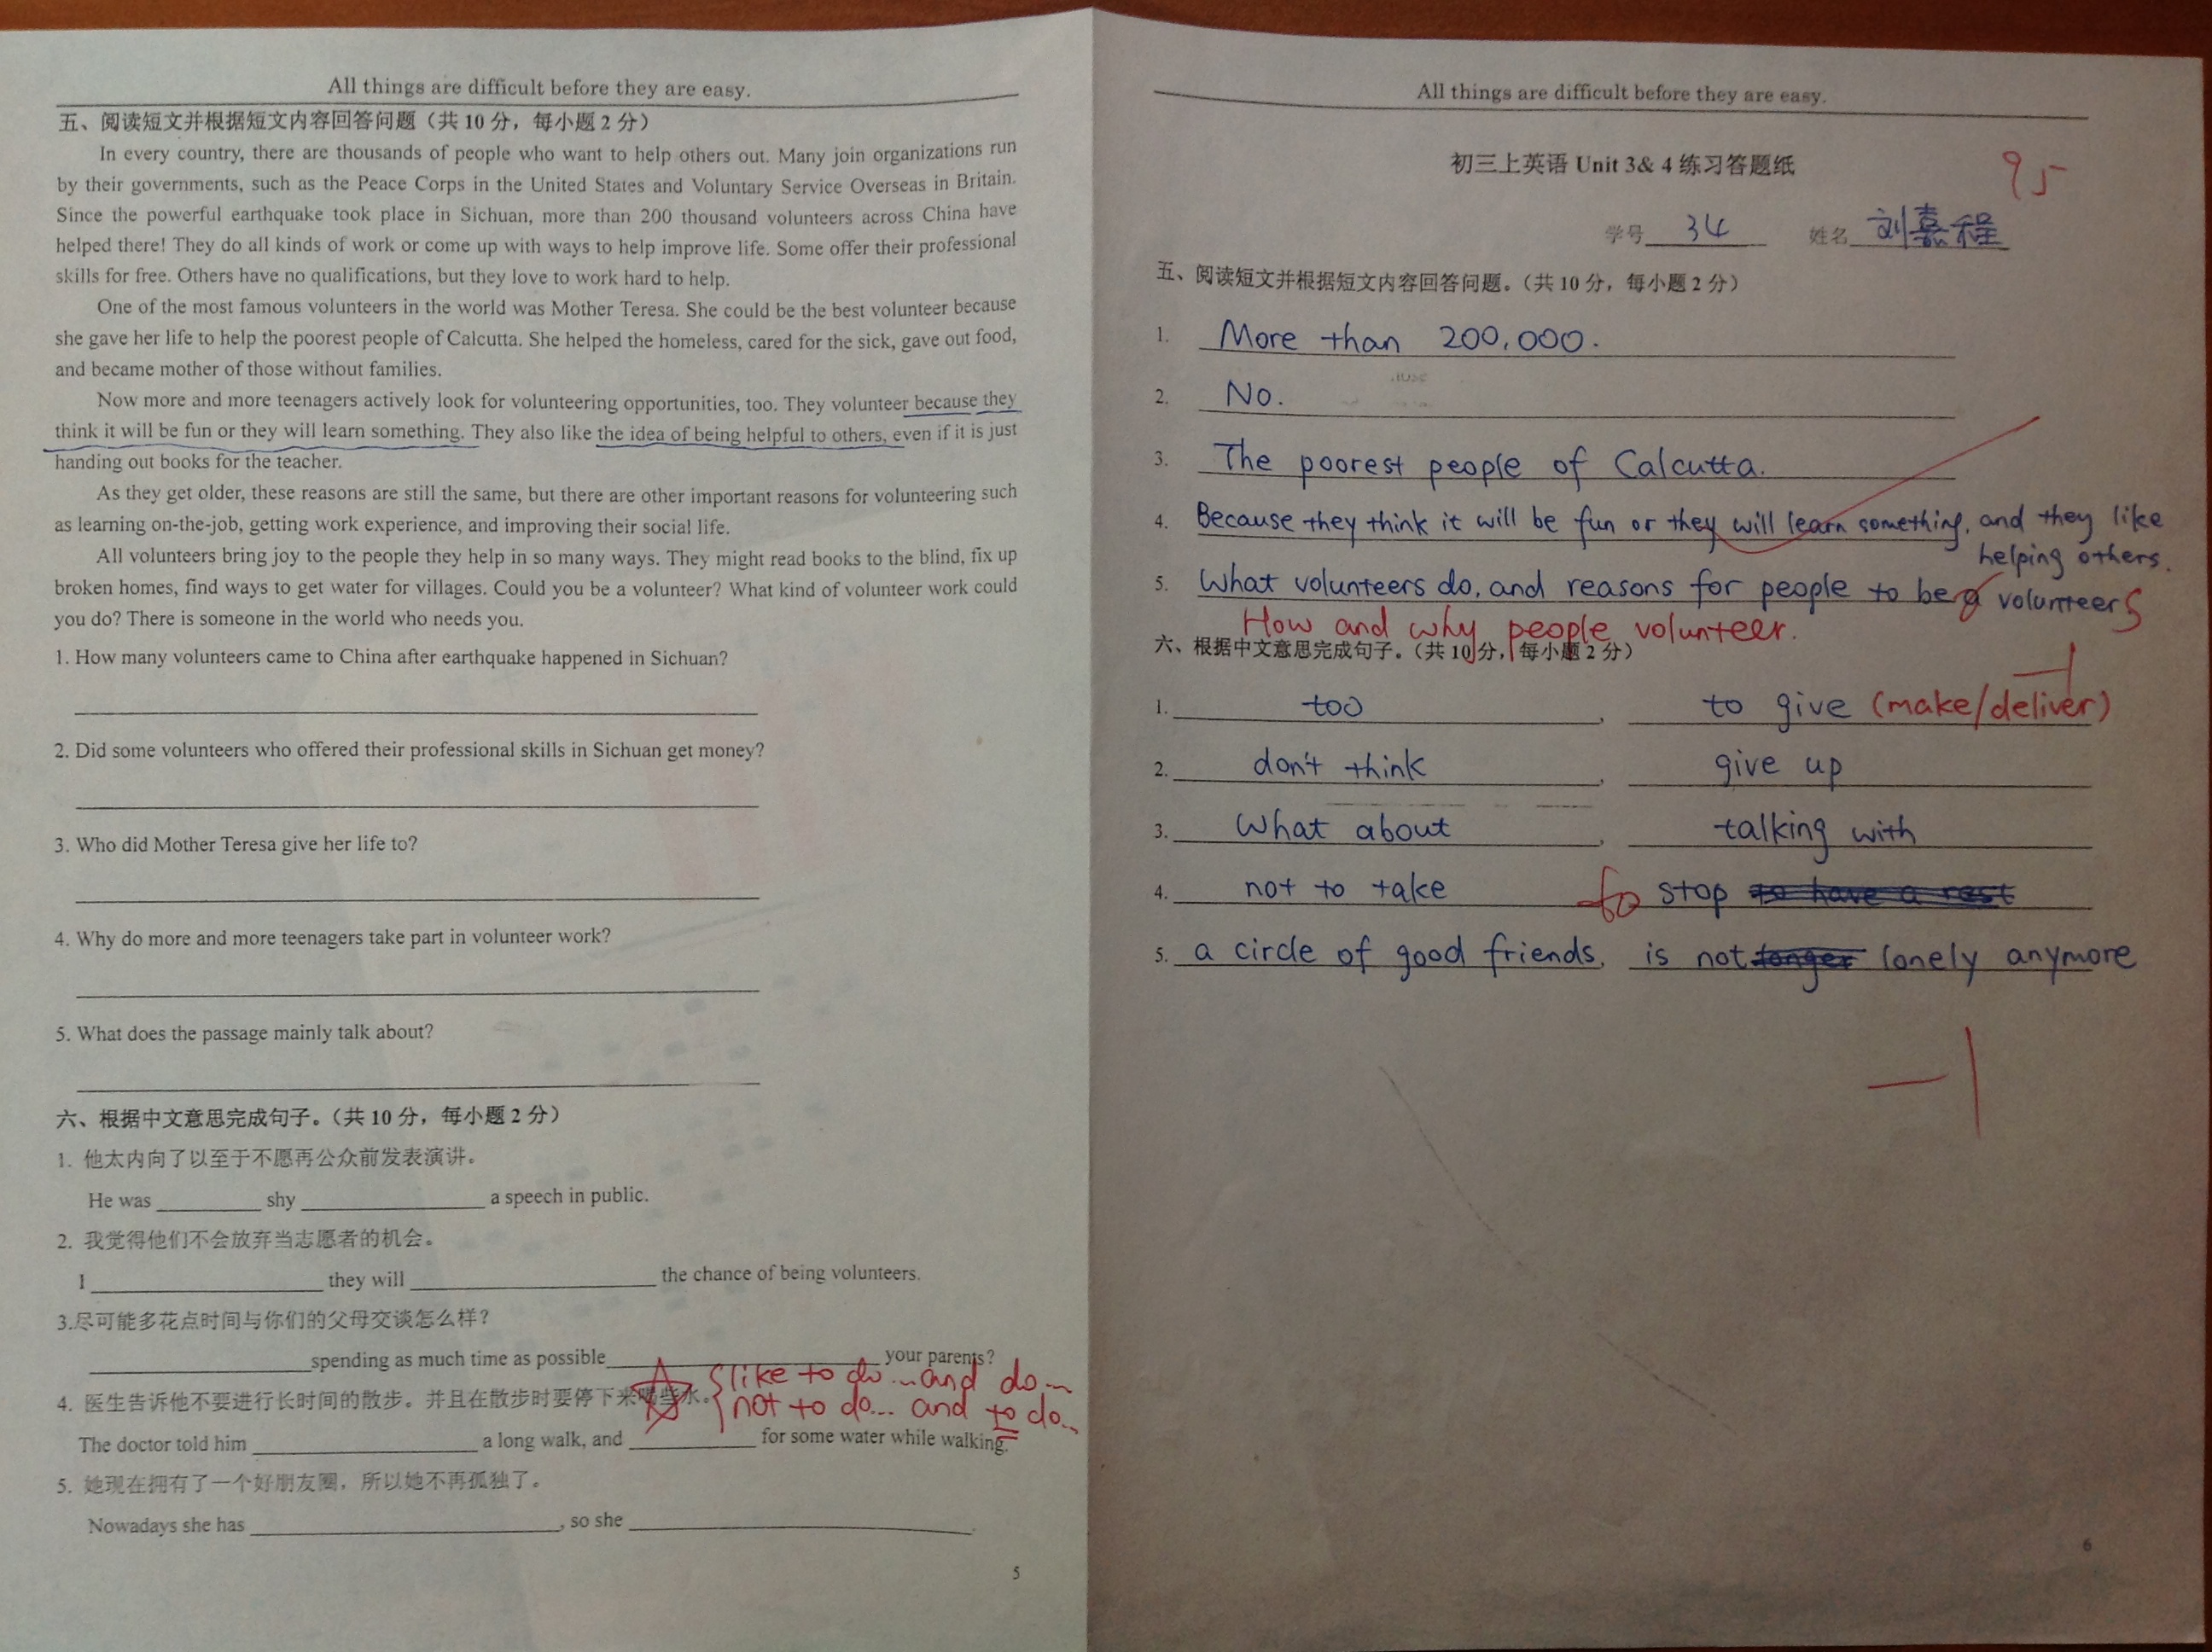 All things are difficult before they are easy.
五、阅读短文并根据短文内容回答问题（共 10 分，每小题 2 分）
In every country, there are thousands of people who want to help others out. Many join organizations run
by their governments, such as the Peace Corps in the United States and Voluntary Service Overseas in Britain.
Since the powerful earthquake took place in Sichuan, more than 200 thousand volunteers across China have
helped there! They do all kinds of work or come up with ways to help improve life. Some offer their professional
skills for free. Others have no qualifications, but they love to work hard to help.
One of the most famous volunteers in the world was Mother Teresa. She could be the best volunteer because
she gave her life to help the poorest people of Calcutta. She helped the homeless, cared for the sick, gave out food,
and became mother of those without families.
Now more and more teenagers actively look for volunteering opportunities, too. They volunteer because they
think it will be fun or they will learn something. They also like the idea of being helpful to others, even if it is just
handing out books for the teacher.
As they get older, these reasons are still the same, but there are other important reasons for volunteering such
as learning on-the-job, getting work experience, and improving their social life.
All volunteers bring joy to the people they help in so many ways. They might read books to the blind, fix up
broken homes, find ways to get water for villages. Could you be a volunteer? What kind of volunteer work could
you do? There is someone in the world who needs you.
1. How many volunteers came to China after earthquake happened in Sichuan?
2. Did some volunteers who offered their professional skills in Sichuan get money?
3. Who did Mother Teresa give her life to?
4. Why do more and more teenagers take part in volunteer work?
5. What does the passage mainly talk about?
六、根据中文意思完成句子。（共 10 分，每小题 2 分）
1. 他太内向了以至于不愿再公众前发表演讲。
He was ________ shy ________ a speech in public.
2. 我觉得他们不会放弃当志愿者的机会。
I ________ they will ________ the chance of being volunteers.
3.尽可能多花点时间与你们的父母交谈怎么样？
________ spending as much time as possible ________ your parents?
like to do... and do...
4. 医生告诉他不要进行长时间的散步。并且在散步时要停下来喝些水。
not to do... and to do...
The doctor told him ________ a long walk, and ________ for some water while walking.
5. 她现在拥有了一个好朋友圈，所以她不再孤独了。
Nowadays she has ________, so she ________.
5
All things are difficult before they are easy.
初三上英语 Unit 3& 4 练习答题纸
95
学号 34 姓名 刘嘉程
五、阅读短文并根据短文内容回答问题。（共 10 分，每小题 2 分）
1. More than 200,000.
2. No.
3. The poorest people of Calcutta.
4. Because they think it will be fun or they will learn something, and they like
helping others.
5. What volunteers do, and reasons for people to be a volunteers
How and why people volunteer.
六、根据中文意思完成句子。（共 10 分，每小题 2 分）
-1
1. too , to give (make/deliver)
2. don't think , give up
3. What about , talking with
4. not to take to stop to have a rest
5. a circle of good friends, is not longer lonely anymore
-1
6